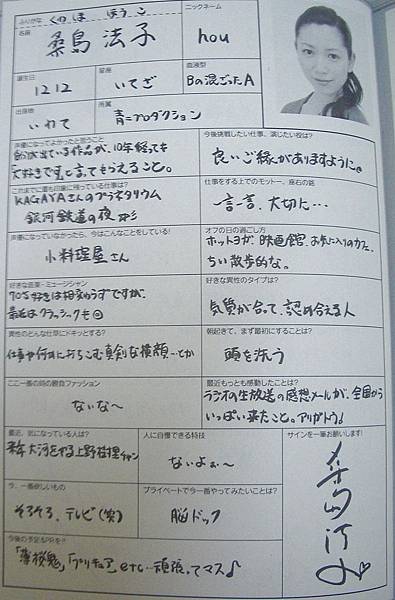 ふりがな くわ しま ほう こ
名前 桑島 法子
ニックネーム
hou
誕生日
12.12
星座
いて座
血液型
Bの混ざったA
出身地
いわて
所属
青二プロダクション
声優になってよかったと思うこと
自分が出ている作品が、10年経っても
大好きです!と言ってもらえること。
今後挑戦したい仕事、演じたい役は?
良いご縁がありますように。
これまでに最も印象に残っている仕事は?
KAGAYAさんのプラネタリウム
銀河鉄道の夜
仕事をする上でのモットー、座右の銘
一言一言、大切に…
声優になっていなかったら、今はこんなことをしている!
小料理屋さん
オフの日の過ごし方
ホットヨガ、映画館、お気に入りのカフェ、
ちい散歩的な。
好きな音楽・ミュージシャン
70'S好きは相変わらずですが、
最近はクラッシックも
好きな異性のタイプは?
気質が合って、認め合える人
異性のどんな仕草にドキッとする?
仕事や何かにおちこむ真剣な横顔…とか
朝起きて、まず最初にすることは?
顔を洗う
ここ一番の時の勝負ファッション
ないな〜
最近もっとも感動したことは?
ラジオの生放送の感想メールが、全国から
いっぱい来たこと。アリガトウ♪
最近、気になっている人は?
来年大河をやる上野樹里チャン
人に自慢できる特技
ないよぉ〜
サインを一筆お願いします!
今、一番欲しいもの
そろそろ、テレビ(笑)
プライベートで今一番やってみたいことは?
脳ドック
今後の予定&PRを!!
「薄桜鬼」「プリキュア」etc…頑張ってマス♪